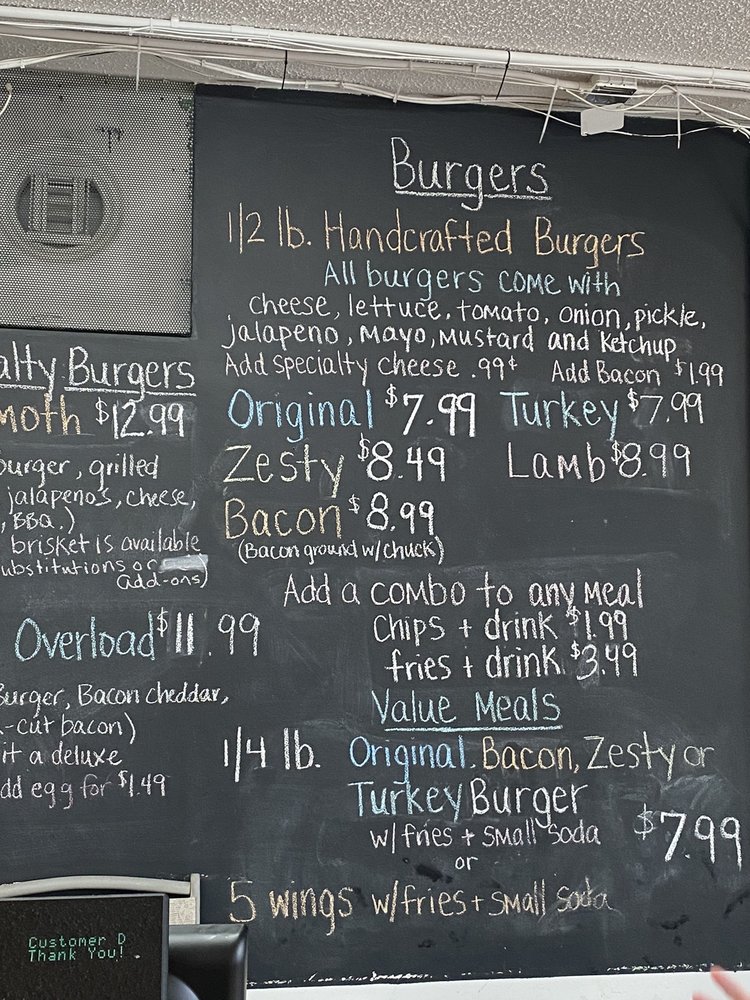 Burgers
1/2 lb. Handcrafted Burgers
All burgers come with
cheese, lettuce, tomato, onion, pickle,
jalapeno, mayo, mustard and ketchup
Add specialty cheese .99¢ Add Bacon $1.99
Original $7.99 Turkey $7.99
Zesty $8.49 Lamb $8.99
Bacon $8.99
(Bacon ground w/chuck)
Add a combo to any meal
chips + drink $1.99
fries + drink $3.49
Value Meals
1/4 lb. Original, Bacon, Zesty or
Turkey Burger
w/fries + small soda $7.99
or
5 wings w/fries + small soda
alty Burgers
moth $12.99
burger, grilled
jalapenos, cheese,
, BBQ.)
brisket is available
ubstitutions or
add-ons)
Overload $11.99
Burger, Bacon cheddar,
-cut bacon)
it a deluxe
dd egg for $1.49
Customer D
Thank You! .